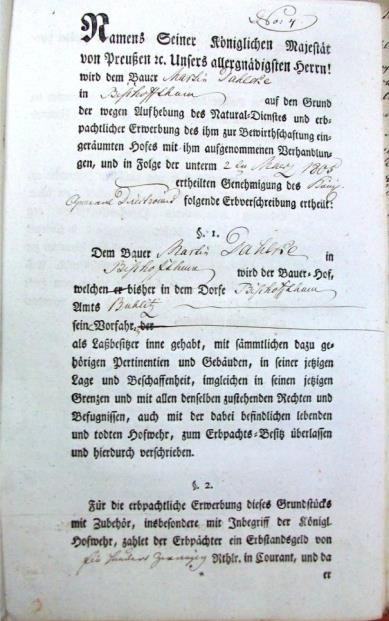 No: 4.
Namens Seiner Königlichen Majestät
von Preußen ꝛc. Unsers allergnädigsten Herrn!
wird dem Bauer Martin
in Bischoffthum auf den Grund
der wegen Aufhebung des Natural-Dienstes und erb-
pachtlicher Erwerbung des ihm zur Bewirthschaftung ein-
geräumten Hofes mit ihm aufgenommenen Verhandlun-
gen, und in Folge der unterm 2 ten
ertheilten Genehmigung des
folgende Erbverschreibung ertheilt:
§. 1.
Dem Bauer Martin in
Bischoffthum wird der Bauer-Hof,
welchen er bisher in dem Dorfe Bischoffthum
Amts Bublitz
sein Vorfahr, der
als Laßbesitzer inne gehabt, mit sämmtlichen dazu ge-
hörigen Pertinentien und Gebäuden, in seiner jetzigen
Lage und Beschaffenheit, imgleichen in seinen jetzigen
Grenzen und mit allen denselben zustehenden Rechten und
Befugnissen, auch mit der dabei befindlichen lebenden
und todten Hofwehr, zum Erbpachts-Besitz überlassen
und hierdurch verschrieben.
§. 2.
Für die erbpachtliche Erwerbung dieses Grundstücks
mit Zubehör, insbesondere mit Inbegriff der Königl.
Hofwehr, zahlet der Erbpächter ein Erbstandsgeld von
hundert zwanzig Rthlr. in Courant, und da
er